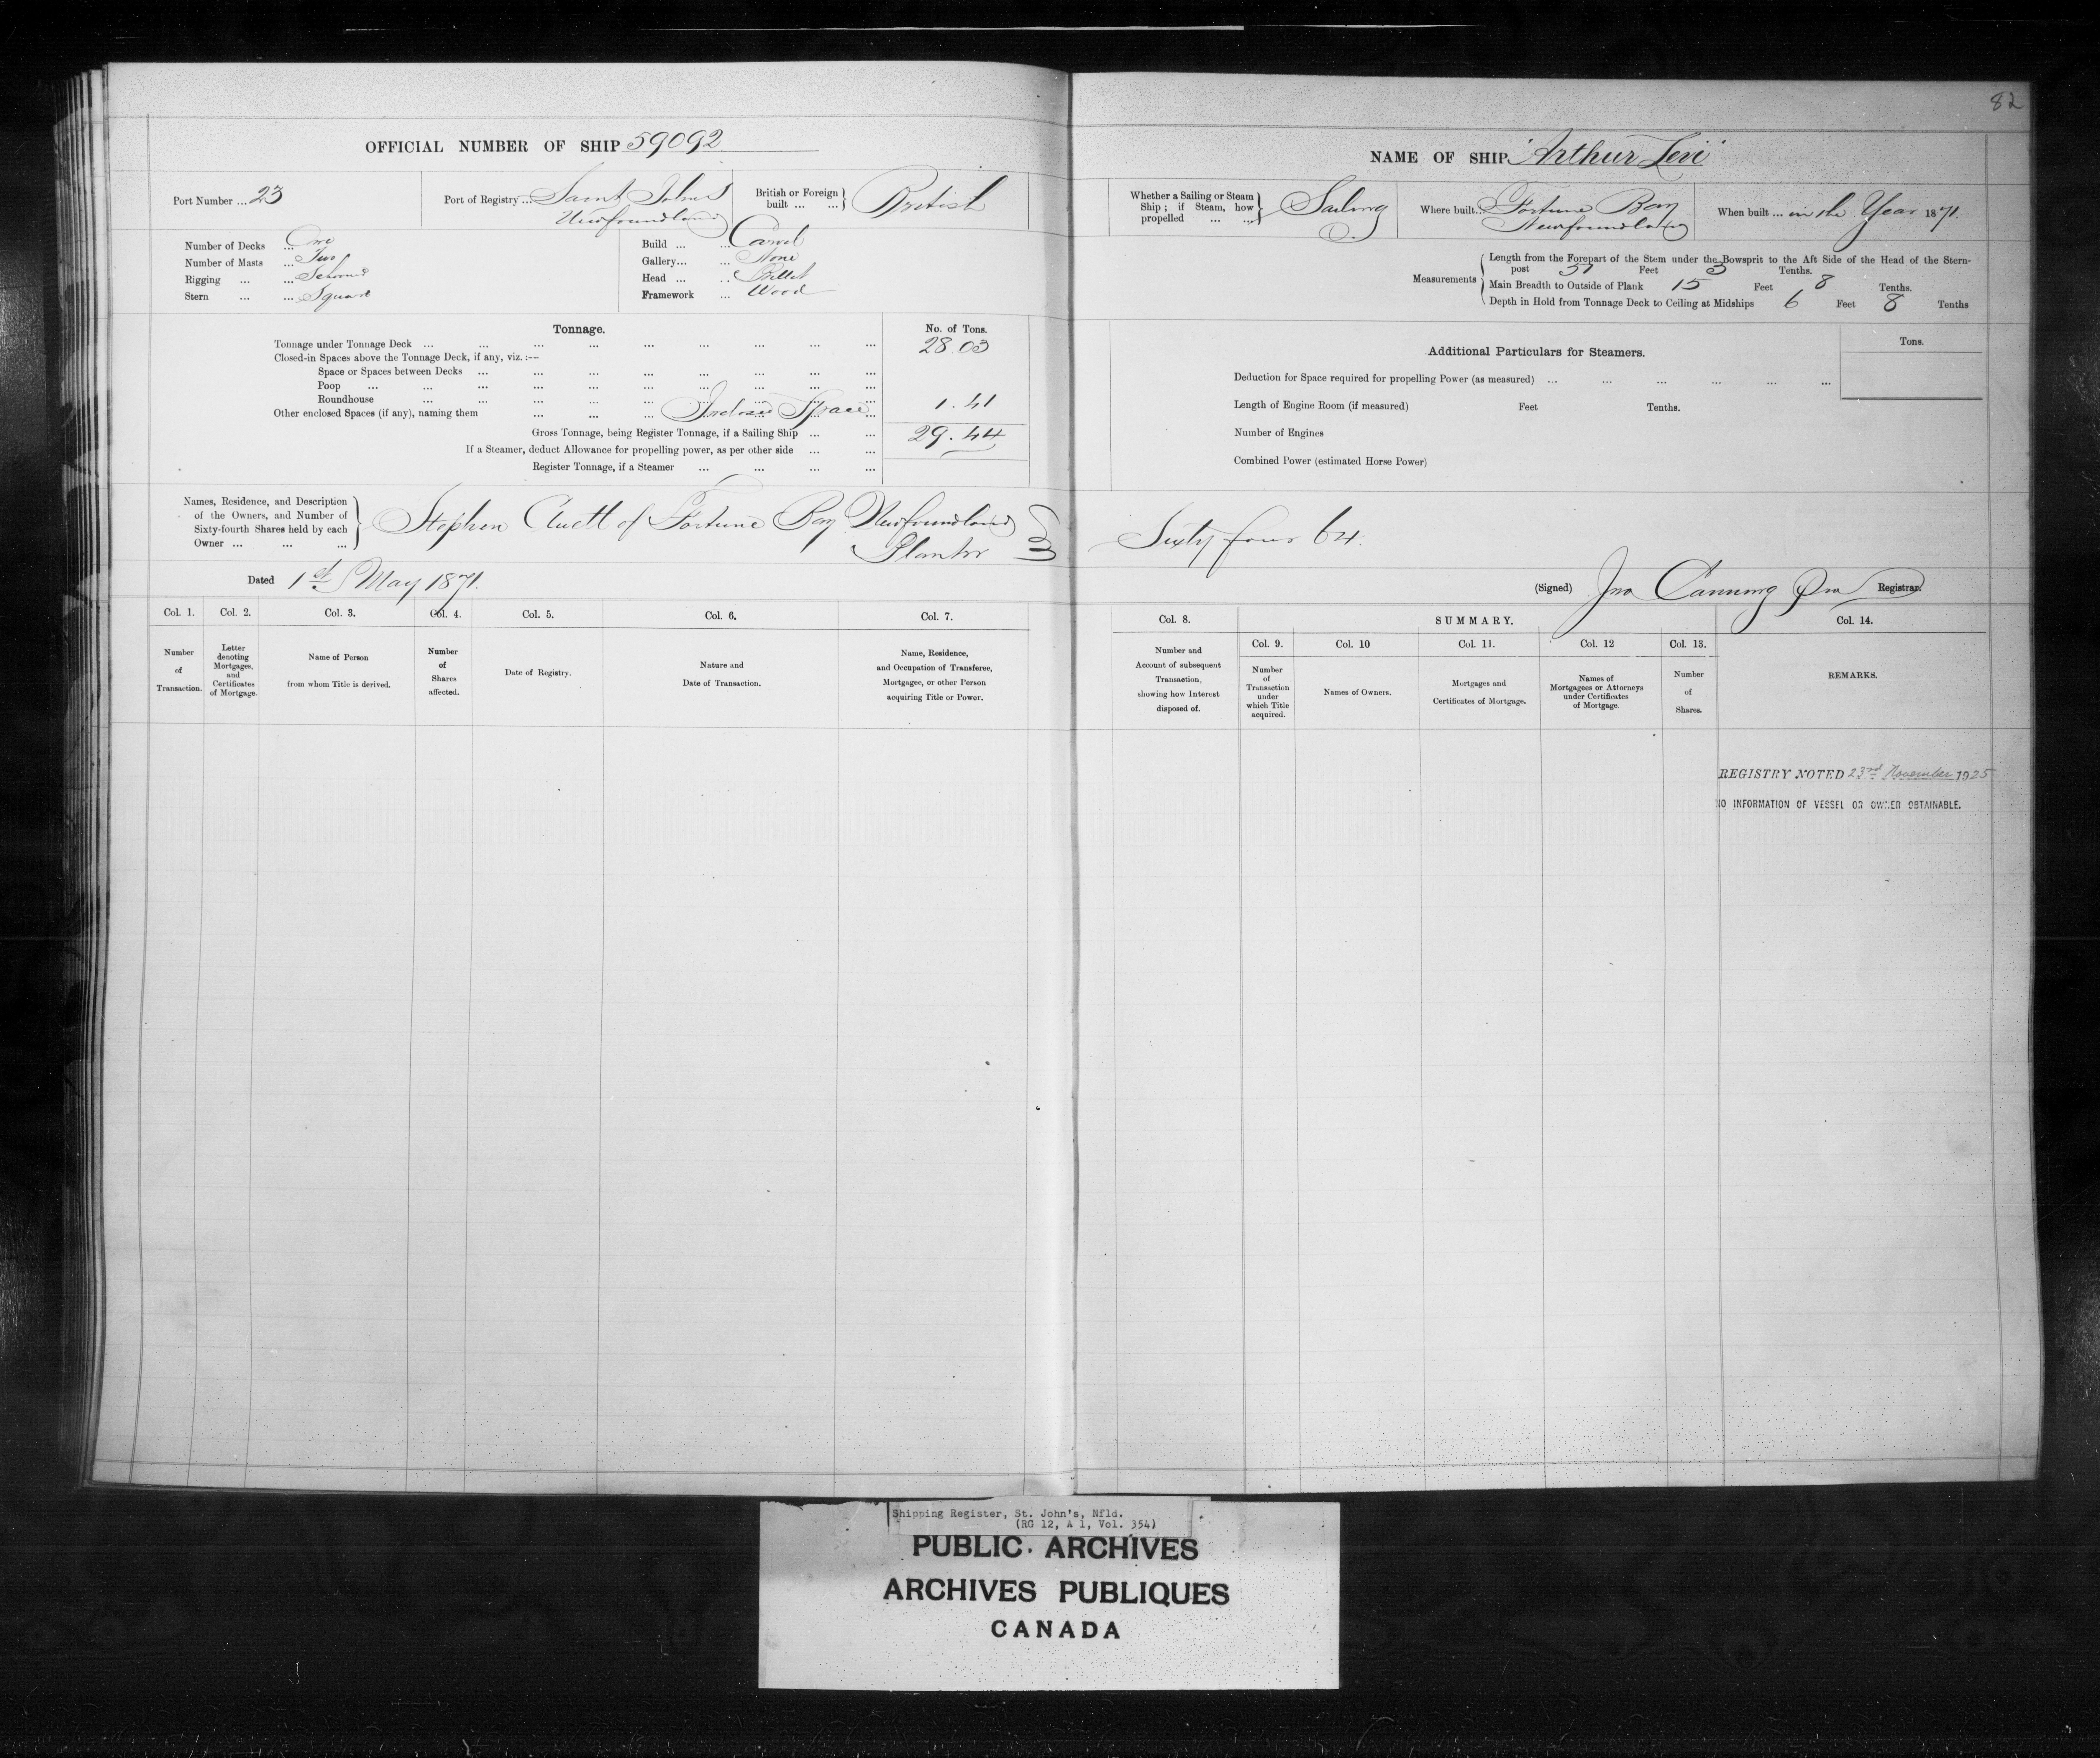 82
OFFICIAL NUMBER OF SHIP 59092
Port Number ... 23
Port of Registry ... Saint Johns
Newfoundland
British or Foreign
built ... ... } British
Number of Decks ... One
Number of Masts ... Two
Rigging ... ... Schooner
Stern ... ... Square
Build ... ... Carvel
Gallery... ... None
Head ... .. Billet
Framework ... Wood
Tonnage.
No. of Tons.
Tonnage under Tonnage Deck ... ... ... ... ... ... ... ... ... 28.03
Closed-in Spaces above the Tonnage Deck, if any, viz. :--
Space or Spaces between Decks ... ... ... ... ... ... ... ...
Poop ... ... ... ... ... ... ... ... ... ...
Roundhouse ... ... ... ... ... ... ... ... ...
Other enclosed Spaces (if any), naming them ... ... ... Inclosed Space ... 1.41
Gross Tonnage, being Register Tonnage, if a Sailing Ship ... ... 29.44
If a Steamer, deduct Allowance for propelling power, as per other side ... ...
Register Tonnage, if a Steamer ... ... ... ...
Names, Residence, and Description
of the Owners, and Number of
Sixty-fourth Shares held by each
Owner ... ... ...
Stephen Cluett of Fortune Bay Newfoundland
Planter
Dated 1st May 1871.
Col. 1.
Col. 2.
Col. 3.
Col. 4.
Col. 5.
Col. 6.
Col. 7.
Number
of
Transaction.
Letter
denoting
Mortgages,
and
Certificates
of Mortgage.
Name of Person
from whom Title is derived.
Number
of
Shares
affected.
Date of Registry.
Nature and
Date of Transaction.
Name, Residence,
and Occupation of Transferee,
Mortgagee, or other Person
acquiring Title or Power.
NAME OF SHIP "Arthur Levi"
Whether a Sailing or Steam
Ship ; if Steam, how
propelled ... ... } Sailing
Where built.. Fortune Bay
Newfoundland
When built ... in the Year 1871.
Measurements
Length from the Forepart of the Stem under the Bowsprit to the Aft Side of the Head of the Stern-
post Feet 3 Tenths.
Main Breadth to Outside of Plank 15 Feet 8 Tenths.
Depth in Hold from Tonnage Deck to Ceiling at Midships 6 Feet 8 Tenths
Additional Particulars for Steamers.
Tons.
Deduction for Space required for propelling Power (as measured) ... ... ... ... ... ...
Length of Engine Room (if measured) Feet Tenths.
Number of Engines
Combined Power (estimated Horse Power)
Sixty four 64.
(Signed) Jno Canning Registrar.
Col. 8.
SUMMARY.
Col. 14.
Col. 9.
Col. 10
Col. 11.
Col. 12
Col. 13.
Number and
Account of subsequent
Transaction,
showing how Interest
disposed of.
Number
of
Transaction
under
which Title
acquired.
Names of Owners.
Mortgages and
Certificates of Mortgage.
Names of
Mortgagees or Attorneys
under Certificates
of Mortgage.
Number
of
Shares.
REMARKS.
REGISTRY NOTED 23rd November 1925
NO INFORMATION OF VESSEL OR OWNER OBTAINABLE.
Shipping Register, St. John's, Nfld.
(RG 12, A 1, Vol. 354)
PUBLIC ARCHIVES
ARCHIVES PUBLIQUES
CANADA